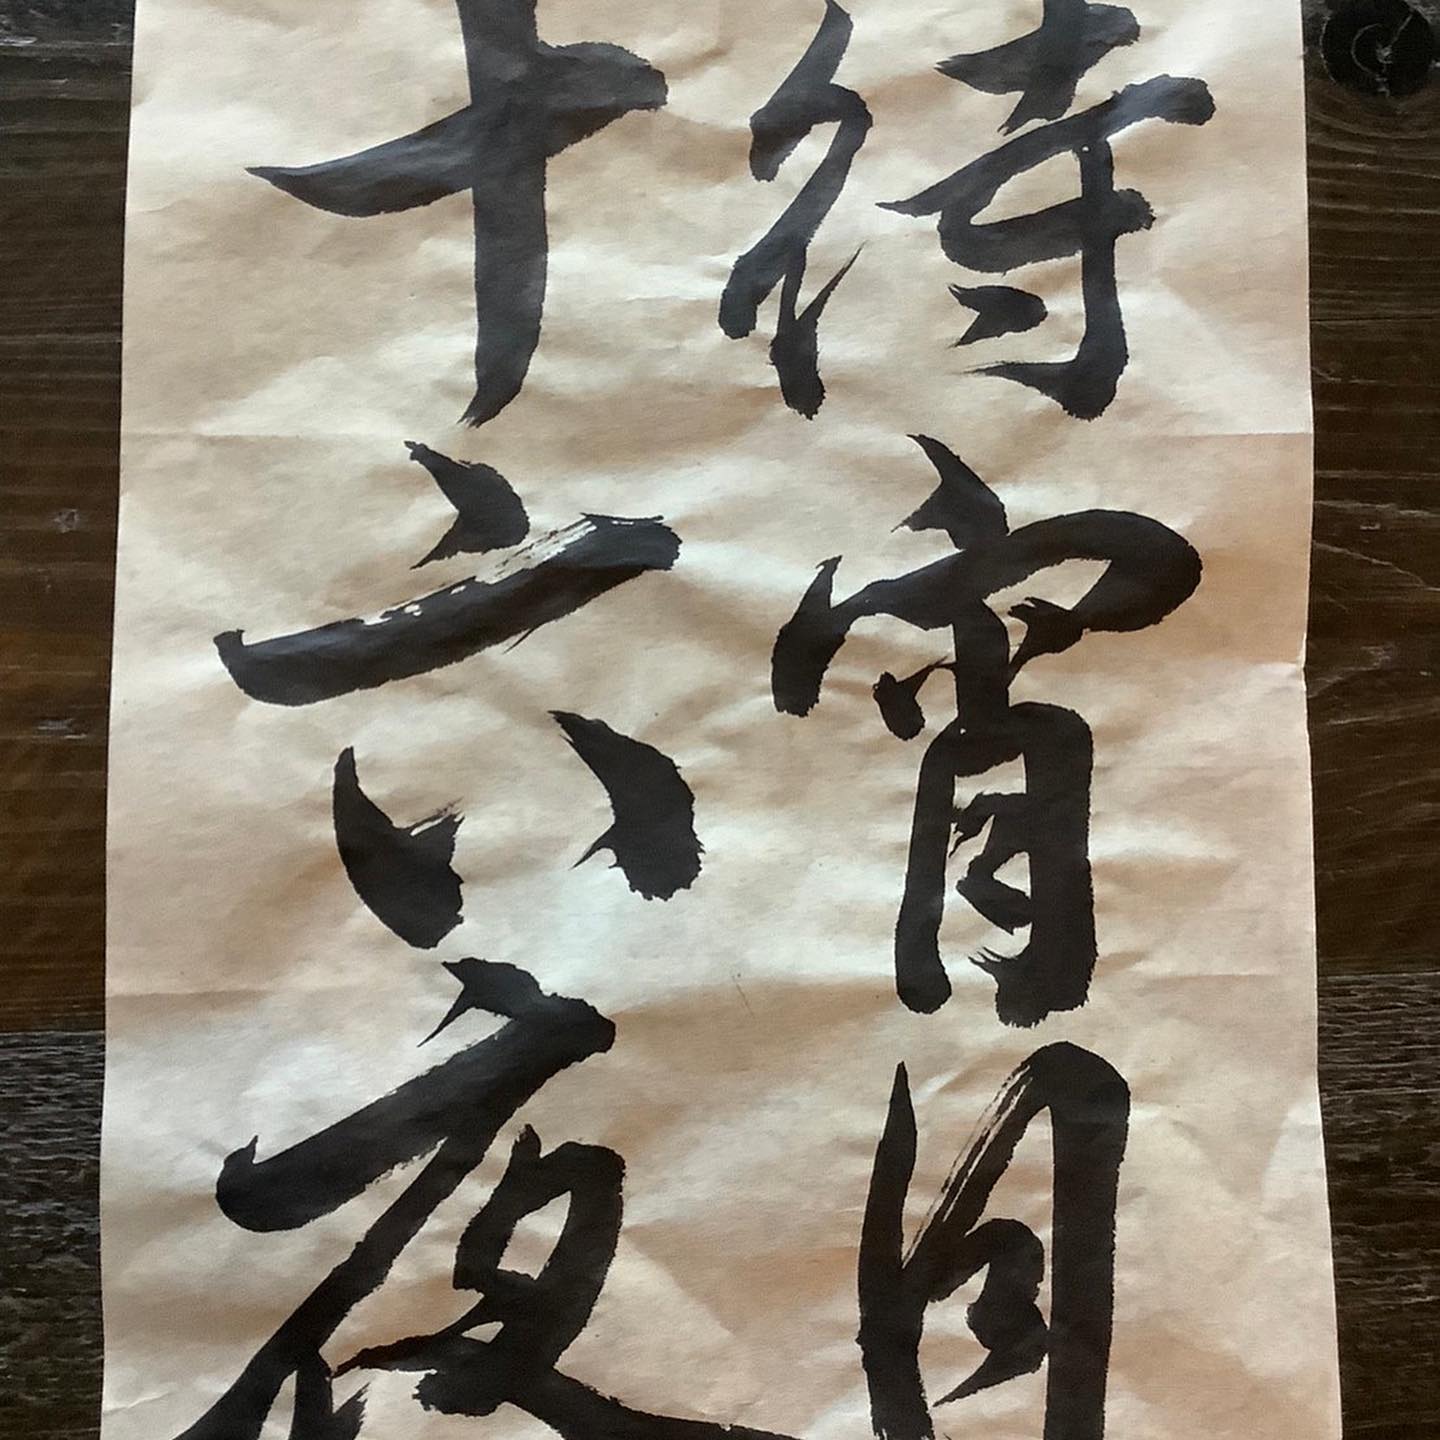 待宵月
十六夜